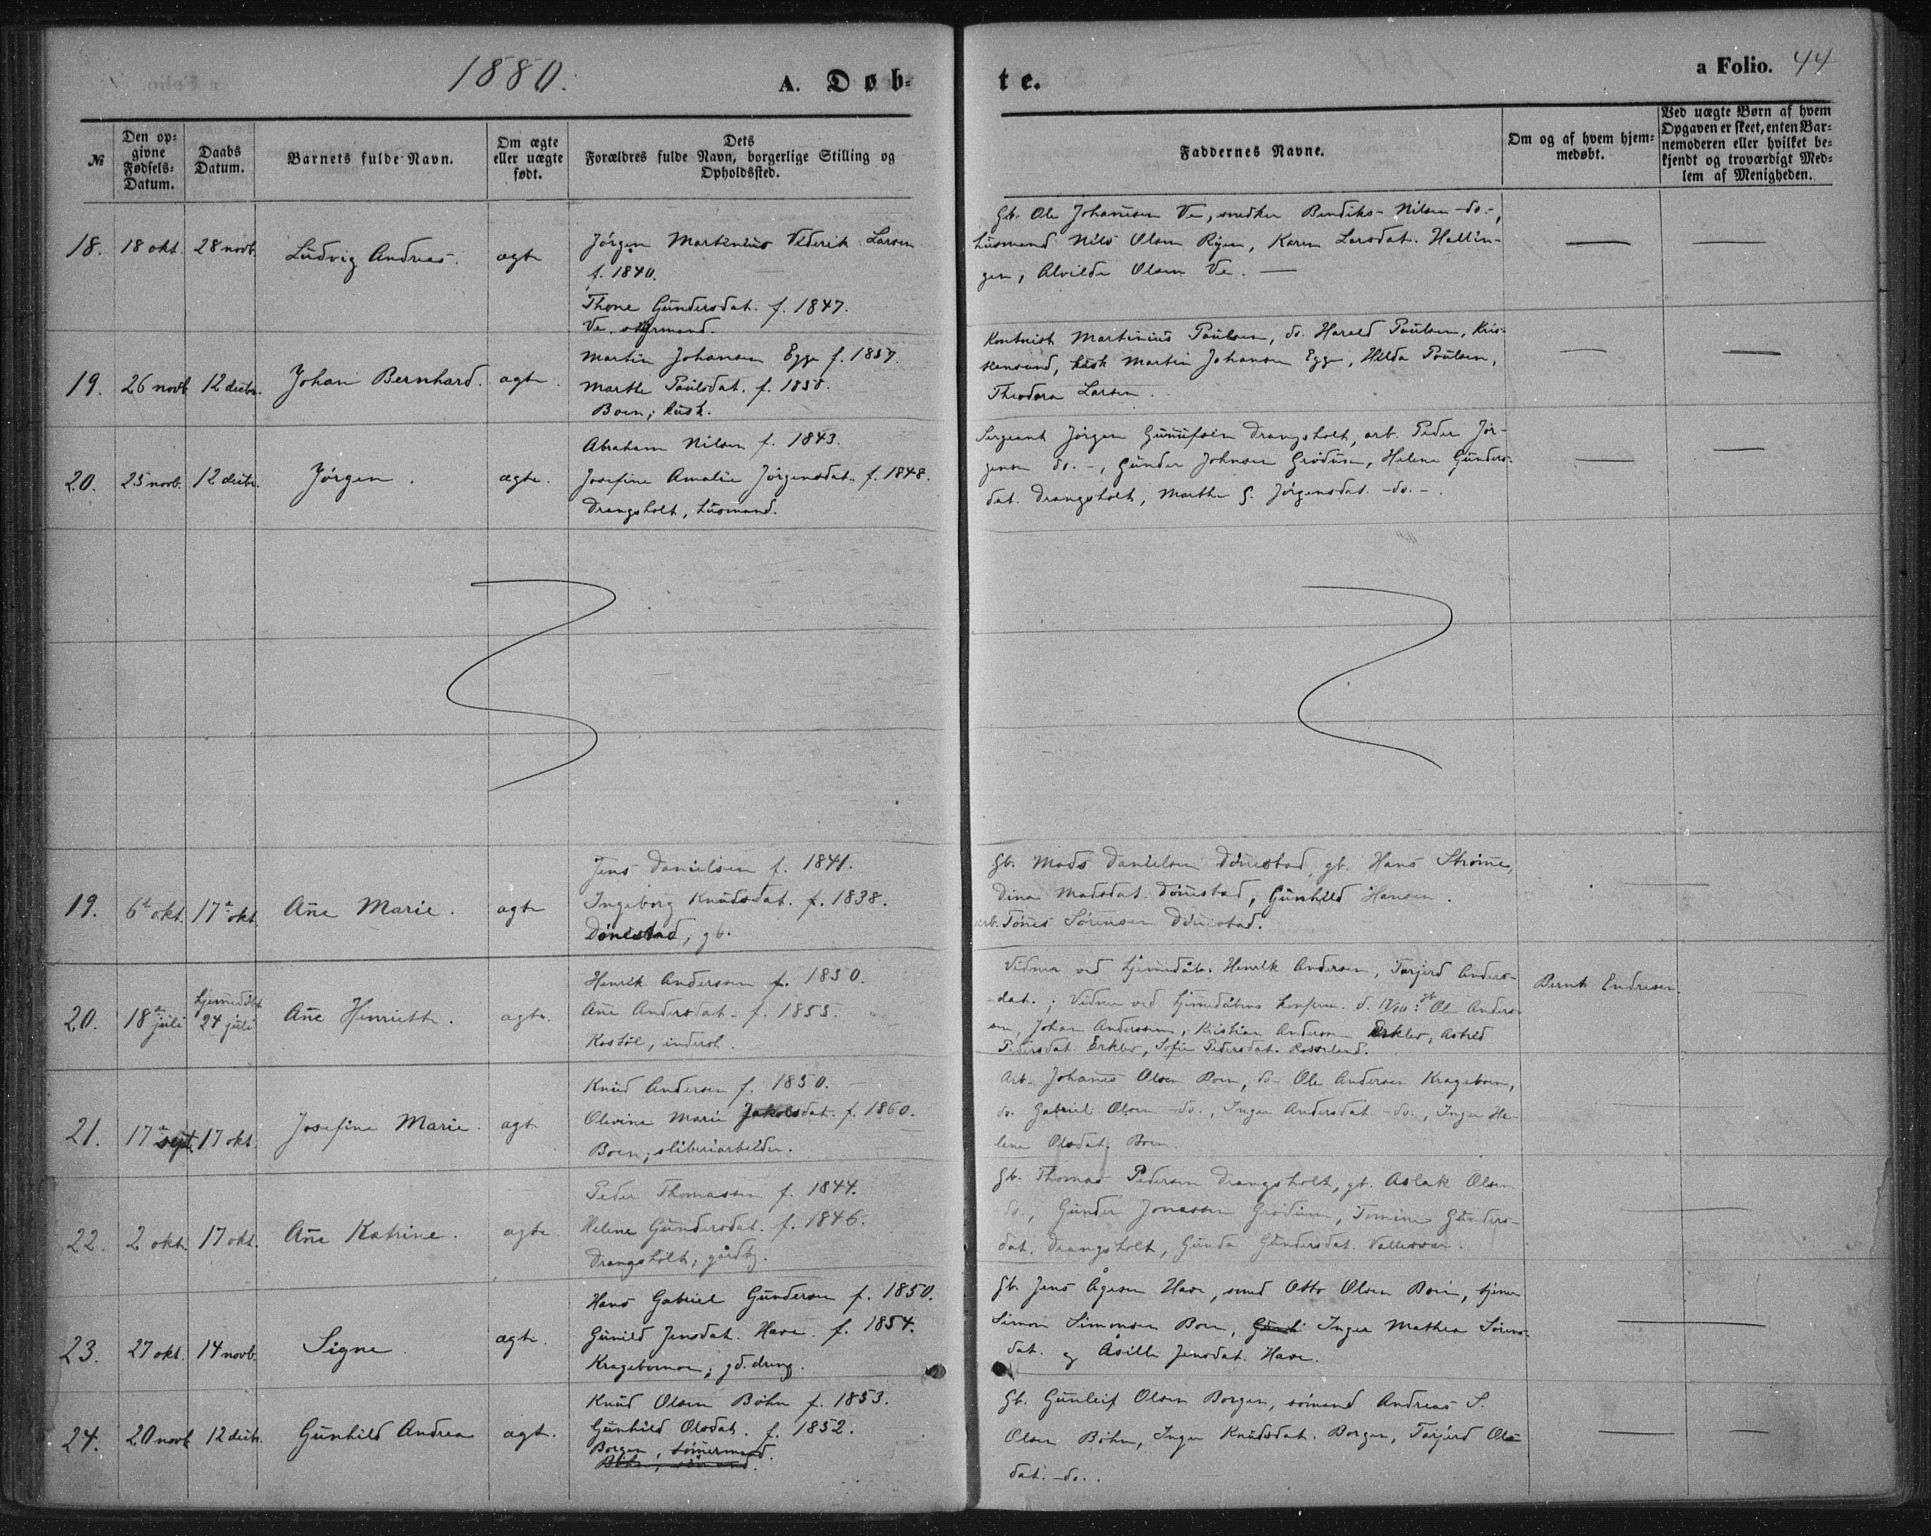 1880. A. Døb-
te. a Folio. 44
№ Den op-givne Fødsels-Datum. Daabs Datum. Barnets fulde Navn. Om ægte eller uægte født. Dets Forældres fulde Navn, borgerlige Stilling og Opholdssted.
Faddernes Navne. Om og af hvem hjem-medøbt. Ved uægte Børn af hvem Opgaven er skeet, enten Bar-nemoderen eller hvilket be-kjendt og troværdigt Med-lem af Menigheden.
18. 18 okt. 28 novb. Ludvig Andreas. ægte
Jörgen Martinius Vederik Larsen
f. 1840.
Thone Gundersdat. f. 1847.
Ve. styrmand.
Gb. Ole Johannesen Ve, snedker Bendiks Nilsen -do-,
husmand Nils Olsen Ryen, Karen Larsdat. Hallin-
gen, Alvilde Olsen Ve. —
19. 26 novb 12 decbr. Johan Bernhard. ægte.
Martin Johansen Egge f. 1857.
Marthe Paulsdat. f. 1858.
Boen; kusk.
Kontorist Martinius Paulsen, do. Harald Paulsen, Kris-
tiansund, kusk Martin Johansen Egge, Hilda Paulsen,
Theodora Larsen.
20. 25 novb. 12 decbr. Jörgen. ægte.
Abraham Nilsen f. 1843.
Josefine Amalie Jörgensdat. f. 1848.
Drangsholt, husmand.
Sergeant Jörgen Gunufsen Drangsholt, arb. Peder Jör-
gensen do. -, Gunder Johnsen Grödum, Helene Gunders-
dat. Drangsholt, Marthe G. Jörgensdat. -do.-.
19. 6te okt. 17de okt. Ane Marie. ægte
Jens Danielsen f. 1841.
Ingeborg Knudsdat. f. 1838.
Dönestad, gb.
Gb. Mads Danielsen Dönestad, gb. Hans Ströme,
Dina Madsdat. Dönestad, Gunhild Hansen.
arb. Tönes Sörensen Dönestad.
20. 18de juli hjemmedöbt 24 juli Ane Henriette. ægte.
Henrik Anderssen f. 1850.
Ane Andersdat. f. 1855.
Kostöl, inderst.
Vidner ved hjemmedåb. Henrik Andersen, Torjerd Anders-
dat.; Vidner ved hjemmedåbens konferm. d. 17/10: Gb Ole Anders-
sen, Johan Anderssen, Kristian Andersen Erklev, Astrid
Pedersdat. Erklev, Sofie Pedersdat. Rosseland.
Bernt Endresen.
21. 17de sept. 17 okt. Josefine Marie. ægte
Knud Andersen f. 1850.
Olevine Marie Jakobsdat. f. 1860.
Boen; sliberiarbeider.
Arb. Johannes Olsen Boen, do Ole Andersen Krageboen,
do. Gabriel Olsen -do., Inger Andersdat -do., Inger He-
lene Olsdat. Boen
22. 2 okt. 17 okt. Ane Katrine. ægte.
Peder Thomassen f. 1844.
Helene Gundersdat. f. 1846.
Drangsholt; gårdb.
Gb. Thomas Pedersen Drangsholt, gb. Aslak Olsen
do., Gunder Jonassen Grödum, Tomine Gunders-
dat. Drangsholt, Gunda Gundersdat. Vallesvær.
23. 27 okt. 14 novb. Signe. ægte.
Hans Gabriel Gundersen f. 1850.
Gunild Jensdat. Have. f. 1854.
Krageboemoen; gd. dreng.
Gb. Jens Ågesen Have, smed Otto Olsen Boen, tjener
Simon Simonsen Boen, Inger Mathea Sörens-
dat. og Åsille Jensdat. Have.
24. 20 novb 12 decbr. Gunhild Andrea ægte.
Knud Olsen Böhn f. 1853.
Gunhild Olsdat. f. 1852.
Borgen, tömmermand.
Böhn, sömand.
Gb. Gunleif Olsen Borgen, sömand Andreas S.
Olsen Böhn, Inger Knudsdat. Borgen, Torjerd Ols-
dat. -do..